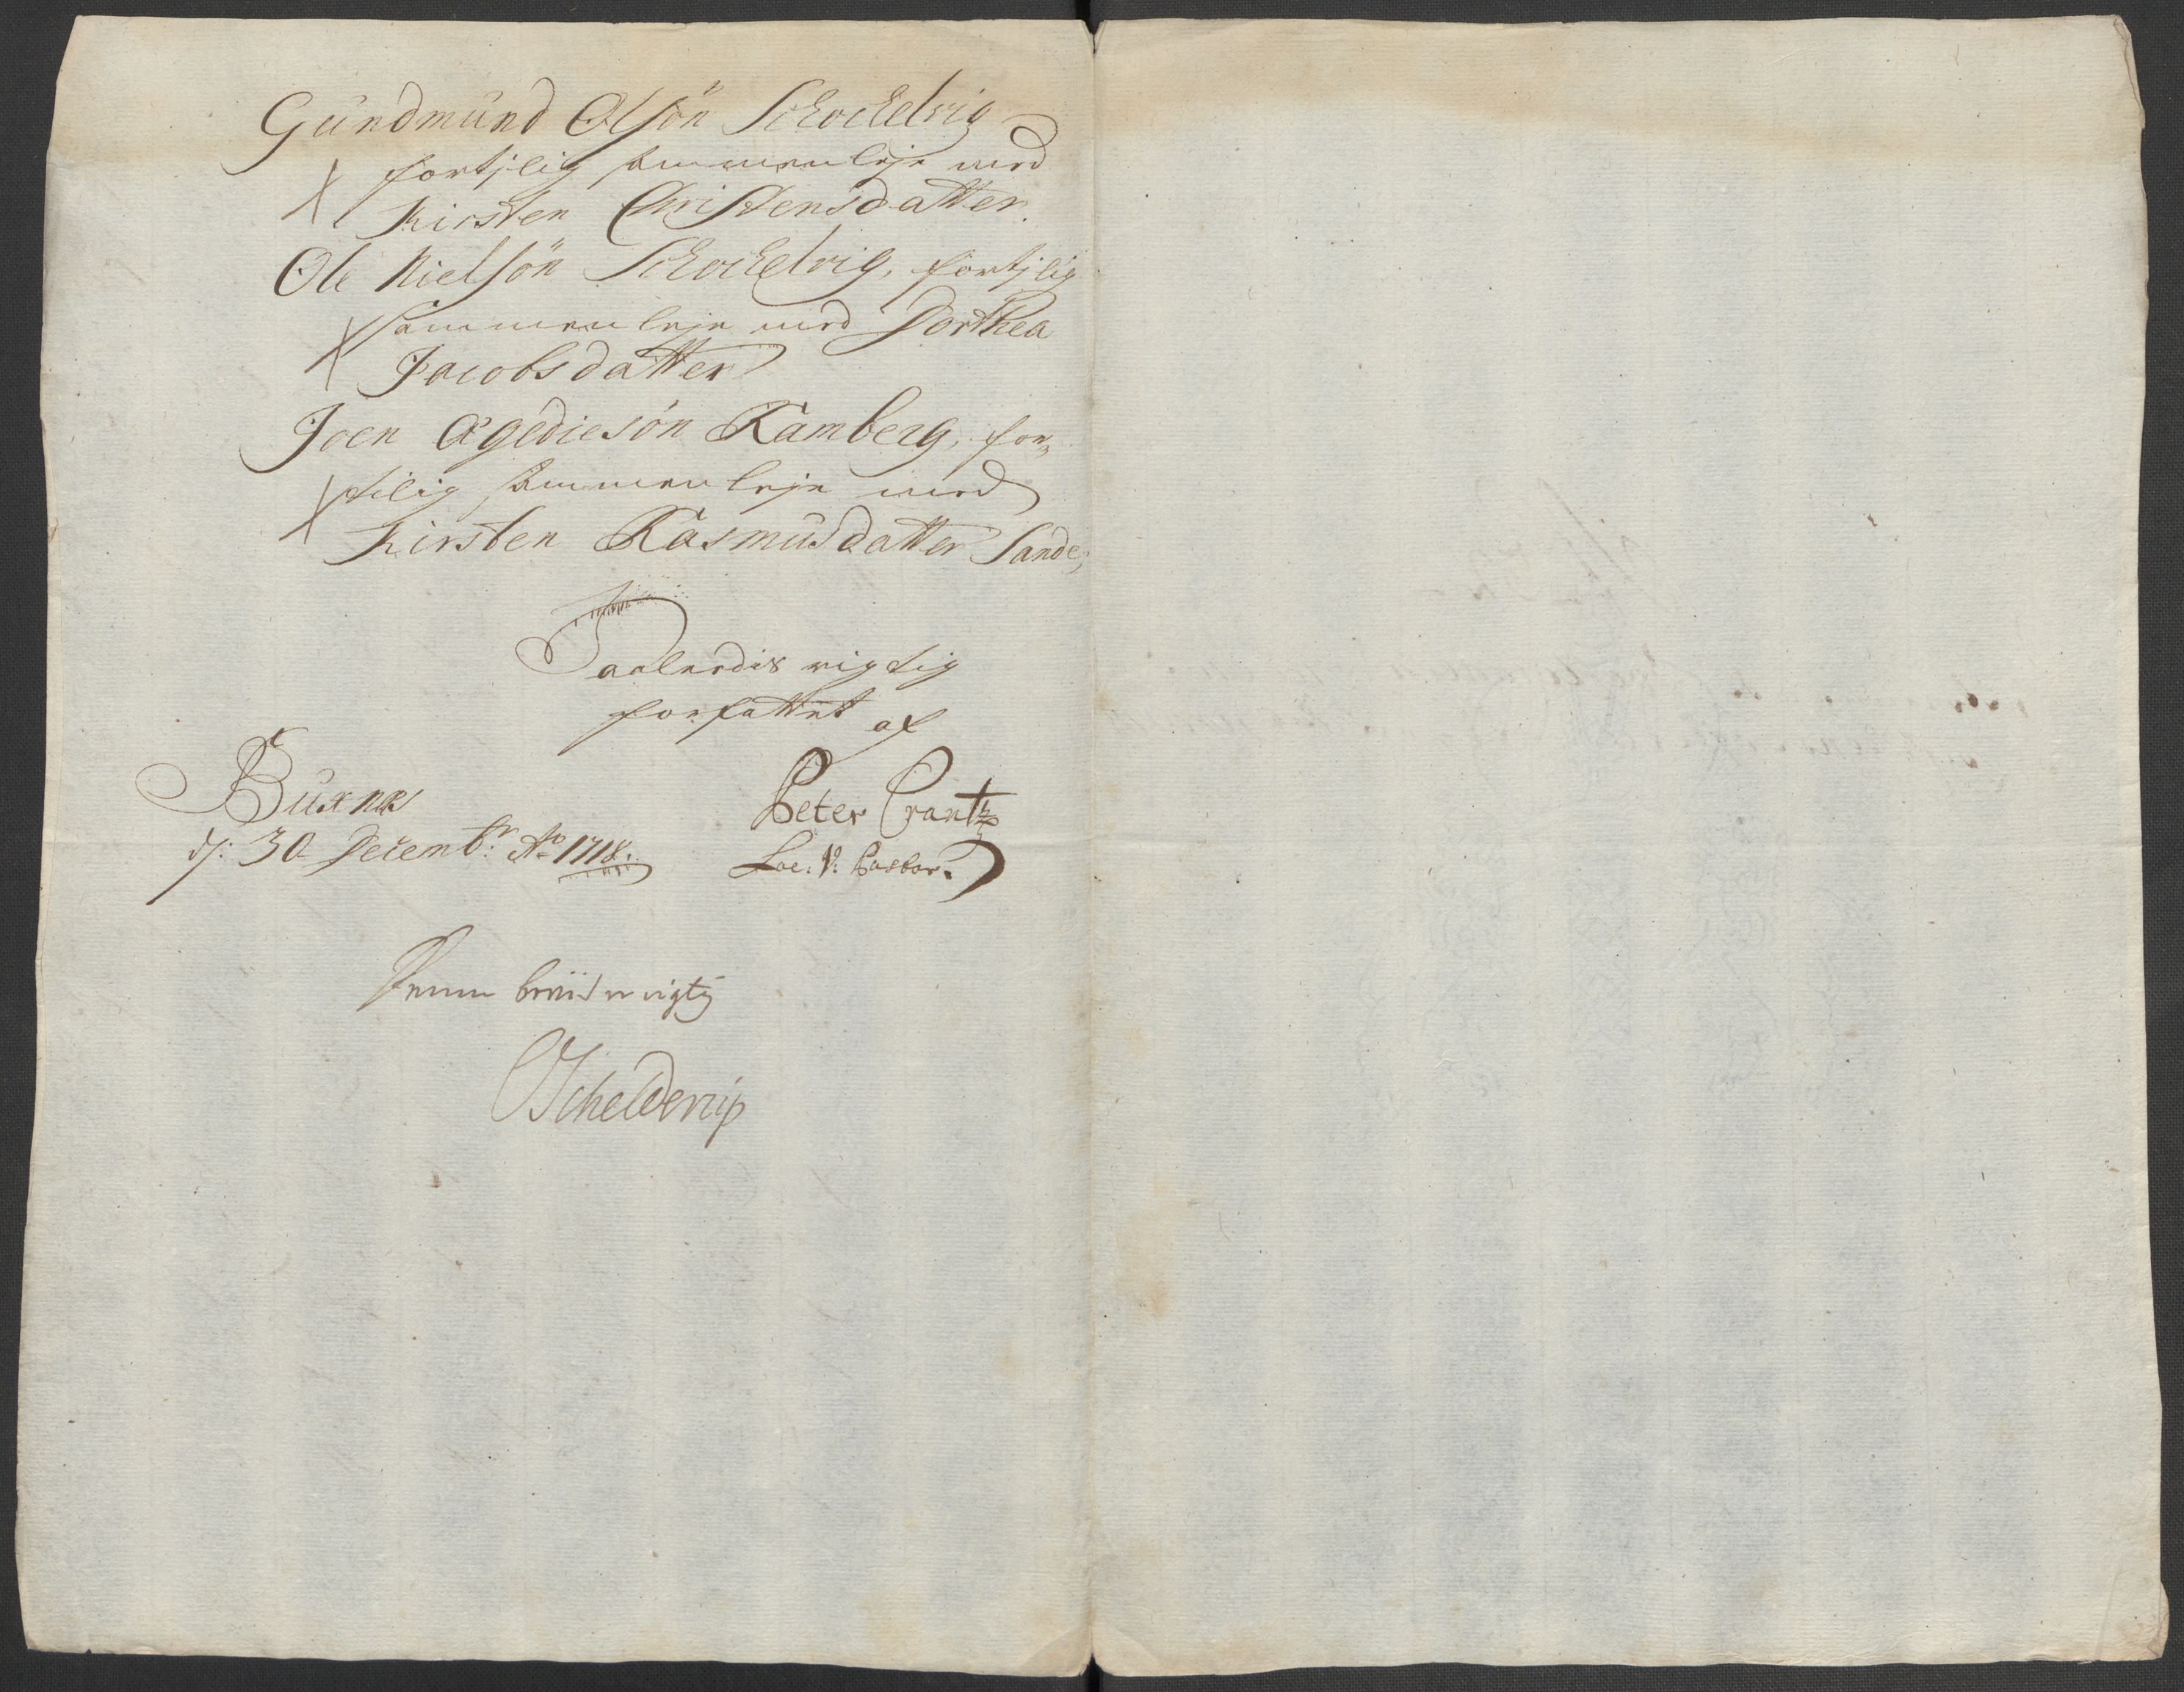 Gündmünd Olsön Schochelvig
fortjlig sammenleje med
Kirsten Christensdatter.
Ole Nielsön Schochelvig, fortjlig
sammenleje med Dorthea
Jacobsdatter
Joen Ægediesön Ramberg, for„
tilig sammenleje med
Kirsten Rasmüsdatter Sande,
Saaledis rigtig
forfattet af
Büxnæs
d: 30 Decembr: Ao 1718.
Peter Crantz
Loc: V: Pastor.
Denne er rigtig
Schelderup